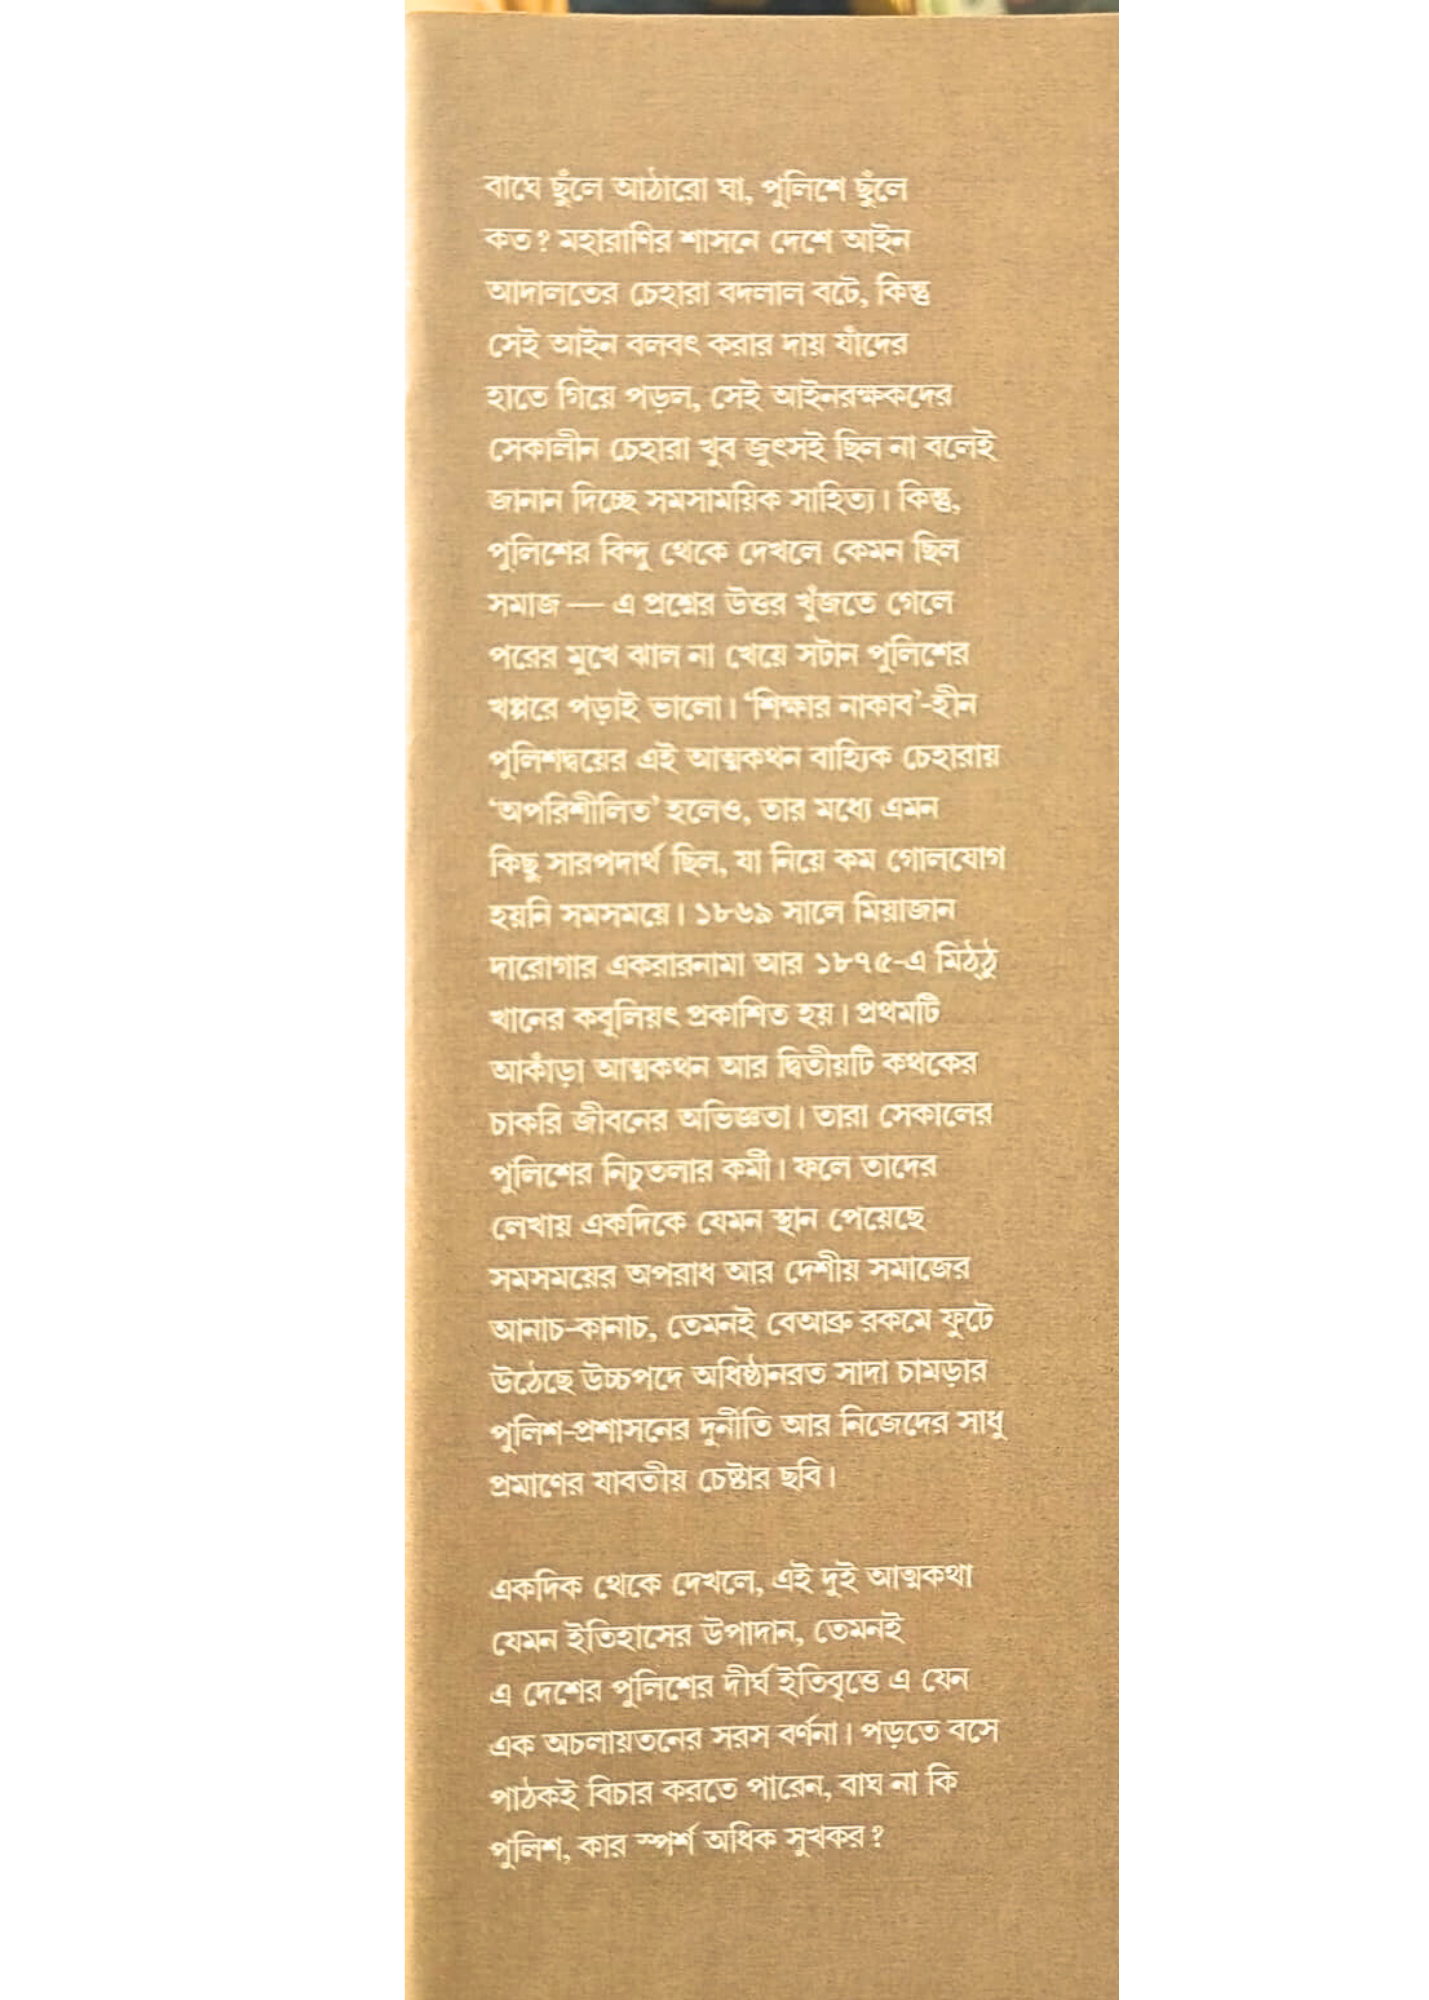 বাঘে ছুঁলে আঠারো ঘা, পুলিশে ছুঁলে
কত? মহারাণির শাসনে দেশে আইন
আদালতের চেহারা বদলাল বটে, কিন্তু
সেই আইন বলবৎ করার দায় যাঁদের
হাতে গিয়ে পড়ল, সেই আইনরক্ষকদের
সেকালীন চেহারা খুব জুৎসই ছিল না বলেই
জানান দিচ্ছে সমসাময়িক সাহিত্য। কিন্তু,
পুলিশের বিন্দু থেকে দেখলে কেমন ছিল
সমাজ — এ প্রশ্নের উত্তর খুঁজতে গেলে
পরের মুখে ঝাল না খেয়ে সটান পুলিশের
খপ্পরে পড়াই ভালো। ‘শিক্ষার নাকাব’-হীন
পুলিশদ্বয়ের এই আত্মকথন বাহ্যিক চেহারায়
‘অপরিশীলিত’ হলেও, তার মধ্যে এমন
কিছু সারপদার্থ ছিল, যা নিয়ে কম গোলযোগ
হয়নি সমসময়ে। ১৮৬৯ সালে মিয়াজান
দারোগার একরারনামা আর ১৮৭৫-এ মিঠ্ঠু
খানের কবূলিয়ৎ প্রকাশিত হয়। প্রথমটি
আকাঁড়া আত্মকথন আর দ্বিতীয়টি কথকের
চাকরি জীবনের অভিজ্ঞতা। তারা সেকালের
পুলিশের নিচুতলার কর্মী। ফলে তাদের
লেখায় একদিকে যেমন স্থান পেয়েছে
সমসময়ের অপরাধ আর দেশীয় সমাজের
আনাচ-কানাচ, তেমনই বেআব্রু রকমে ফুটে
উঠেছে উচ্চপদে অধিষ্ঠানরত সাদা চামড়ার
পুলিশ-প্রশাসনের দুর্নীতি আর নিজেদের সাধু
প্রমাণের যাবতীয় চেষ্টার ছবি।
একদিক থেকে দেখলে, এই দুই আত্মকথা
যেমন ইতিহাসের উপাদান, তেমনই
এ দেশের পুলিশের দীর্ঘ ইতিবৃত্তে এ যেন
এক অচলায়তনের সরস বর্ণনা। পড়তে বসে
পাঠকই বিচার করতে পারেন, বাঘ না কি
পুলিশ, কার স্পর্শ অধিক সুখকর?